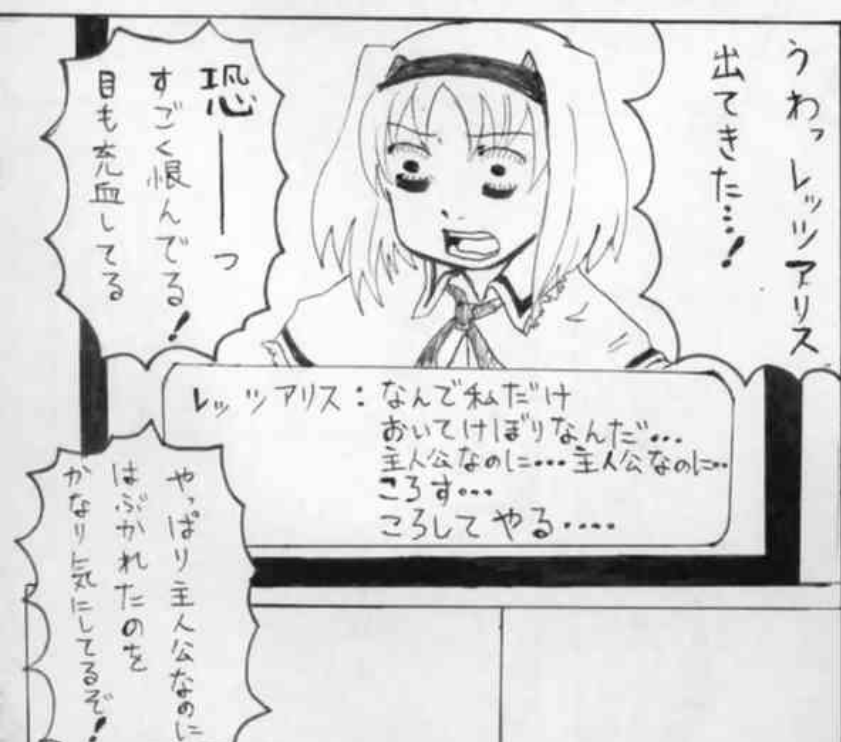 うわっレッツアリス
出てきた…!
恐――っ
すごく恨んでる!
目も充血してる
レッツアリス:なんで私だけ
おいてけぼりなんだ…
主人公なのに…主人公なのに…
ころす…
ころしてやる‥‥
やっぱり主人公なのに
はぶかれたのを
かなり気にしてるぞ!